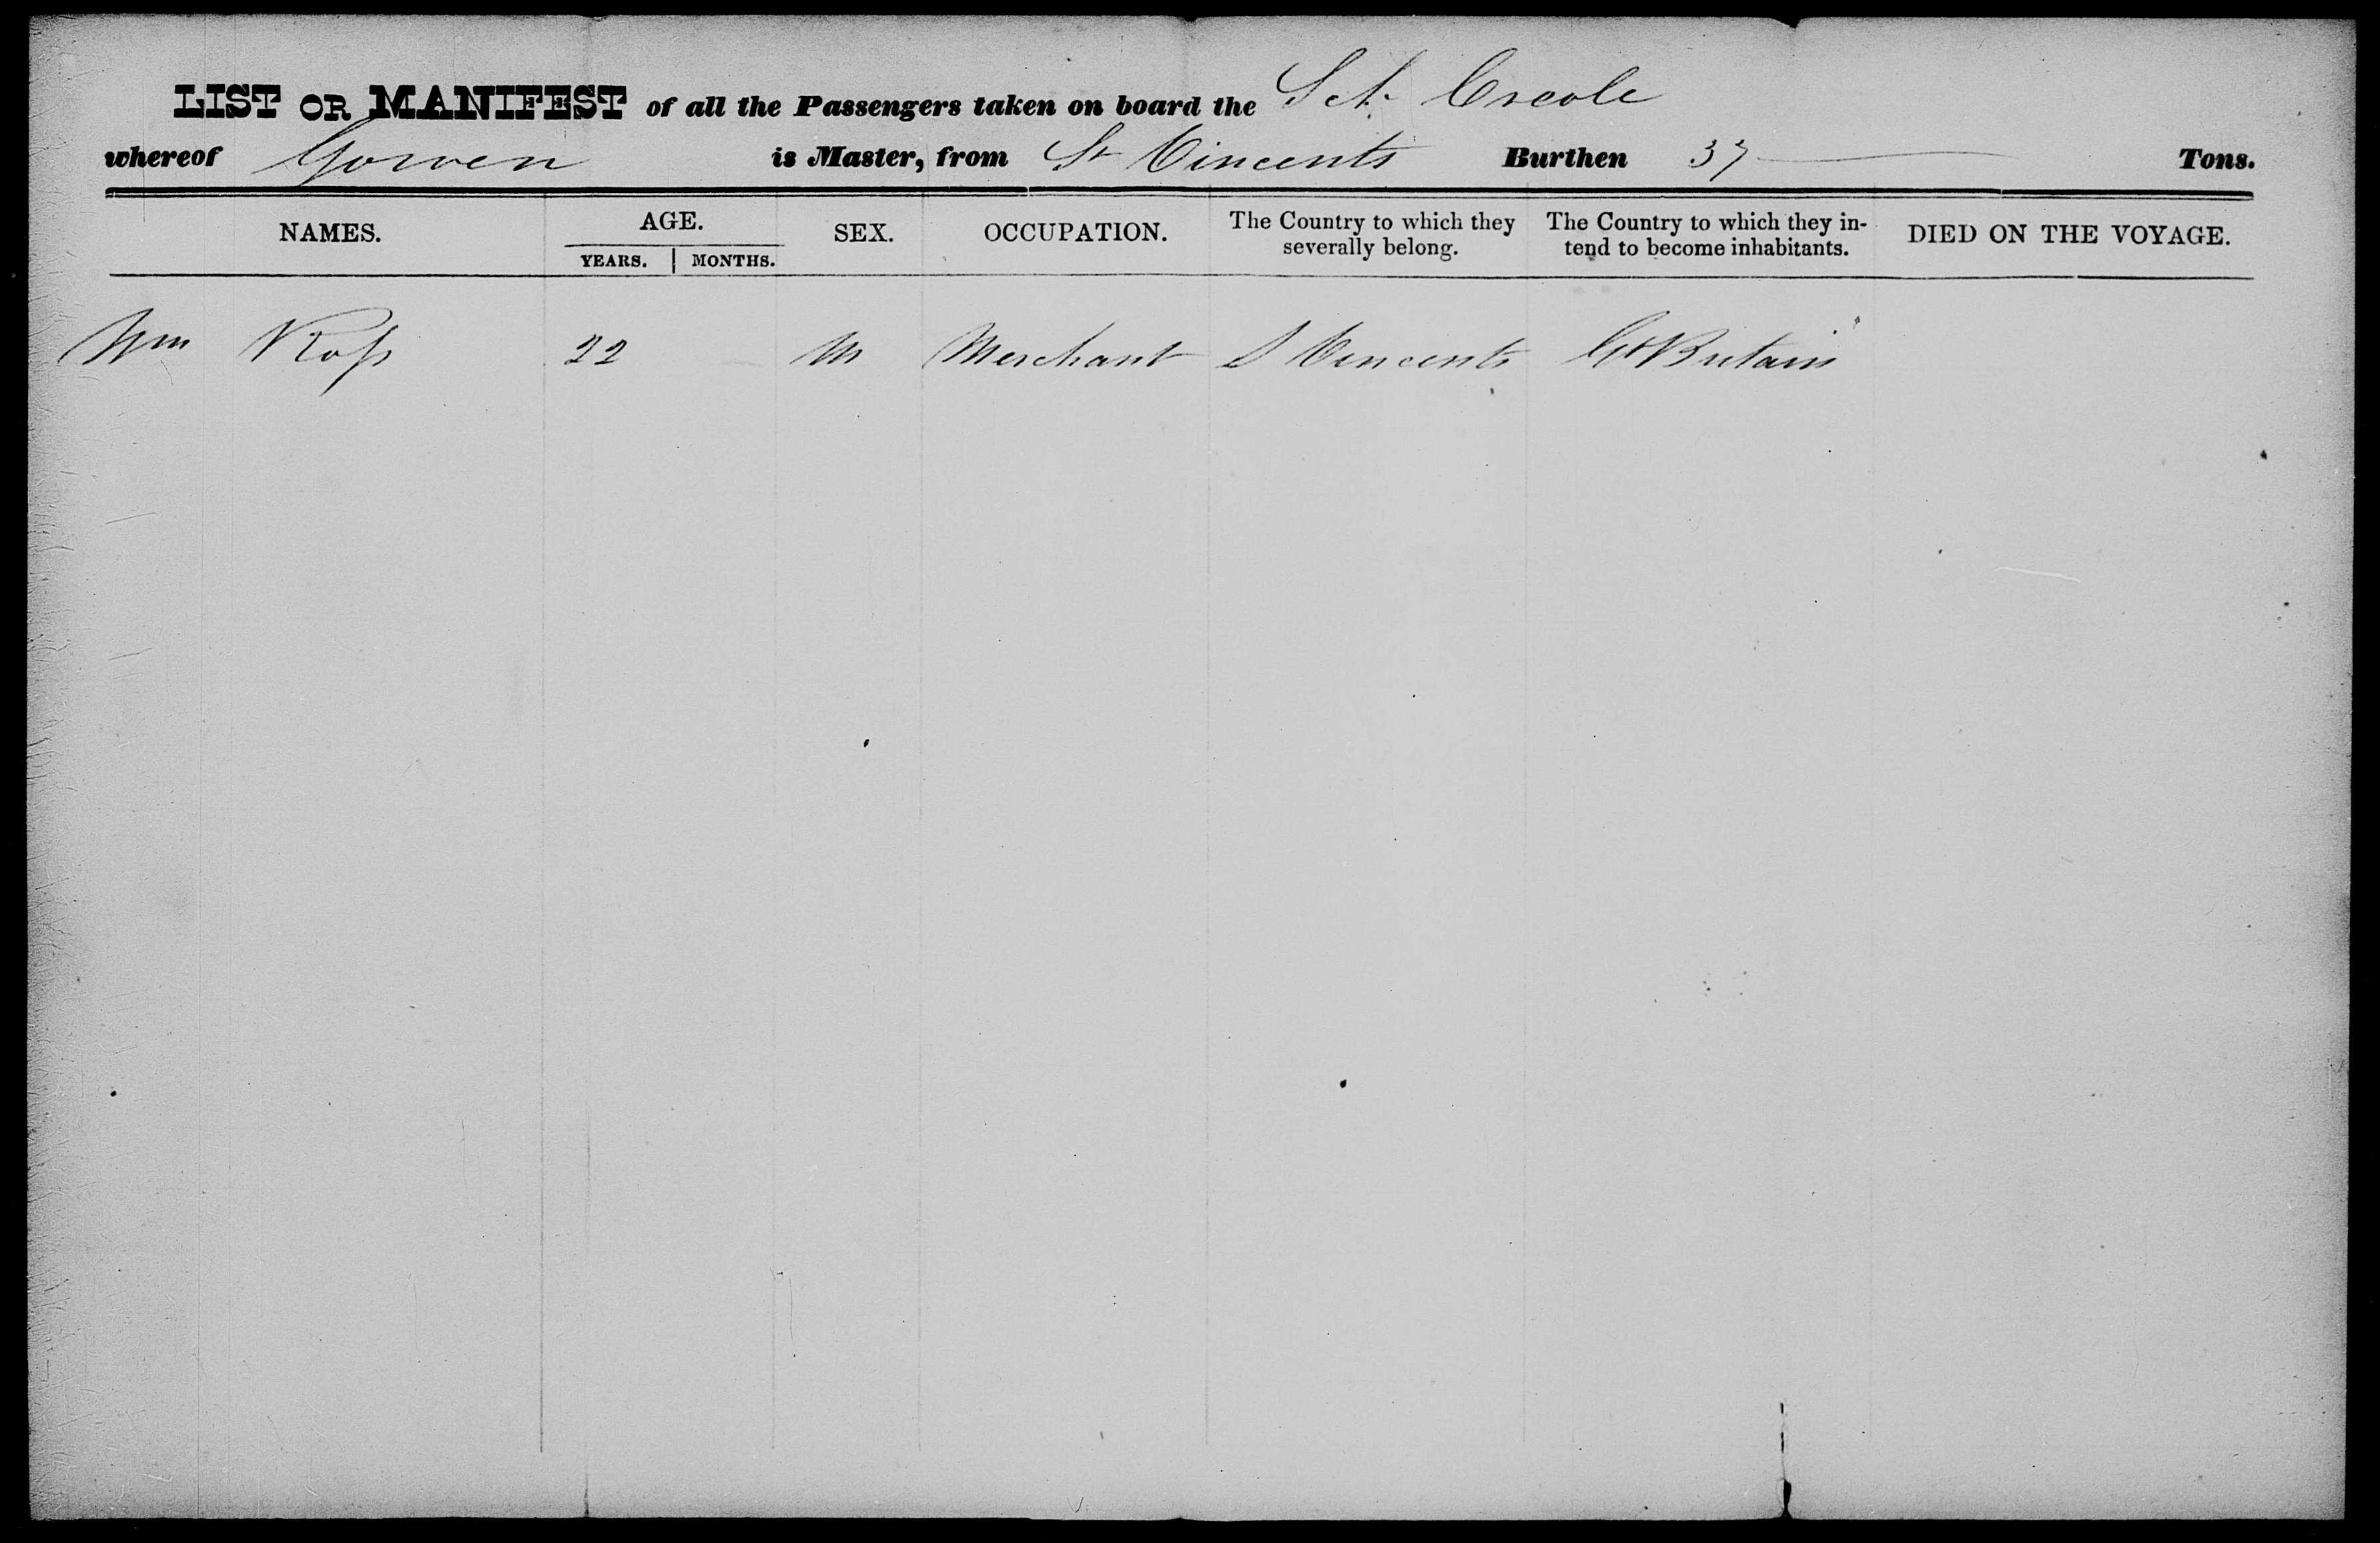 LIST OR MANIFEST of all the Passengers taken on board the Sch. Creole
whereof Gowen is Master, from St Vincents Burthen 37 Tons.
NAMES. AGE. SEX. OCCUPATION. The Country to which they severally belong. The Country to which they in-tend to become inhabitants. DIED ON THE VOYAGE.
YEARS. MONTHS.
Wm Ross 22 M Merchant St Vincents Gt Britain